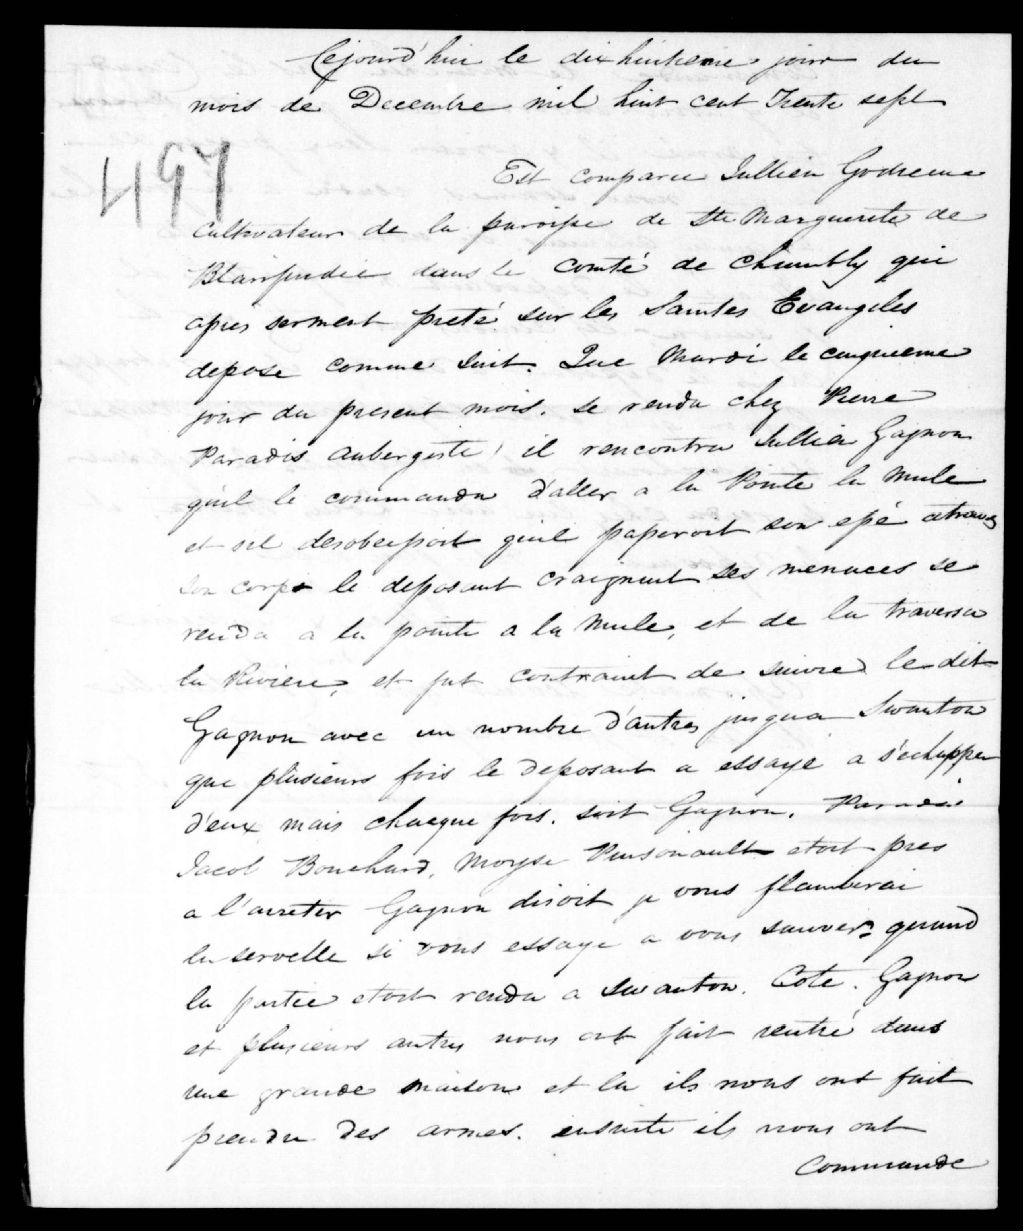 Cejourd'hui le dix huitieme jour du
mois de Decembre mil huit cent Trente sept
497
Est comparu Jullien Godreau
cultivateur de la paroisse de Ste Marguerite de
Blairfindie dans le Comté de Chambly qui
apres serment preté sur les Saintes Evangiles
depose comme suit. Que Mardi le cinquieme
jour du present mois. se rendu chez Pierre
Paradis aubergiste, il rencontra Jullien Gagnon
quil le commanda d'aller a la Pointe la Mule
et sil desobeissoit quil passeroit son epé atravers
son corps le deposant craignant ses menaces se
renda a la pointe a la Mule, et de la traversa
la Riviere, et fut contraint de suivre le dit
Gagnon avec un nombre d'autres jusqua Swanton
que plusieurs fois le deposant a essayé a s'echapper
d'eux mais chacque fois. soit Gagnon, Paradis
Jacob Bouchard, Moyse Pinsonault etoit pres
a l'arreter Gagnon disoit je vous flamberai
la servelle si vous essaye a vous sauver. quand
la partie etoit rendu a Swanton. Cote. Gagnon
et plusieurs autres nous ont fait rentré dans
une grande maison et la ils nous ont fait
prendre des armes. ensuite ils nous ont
commande